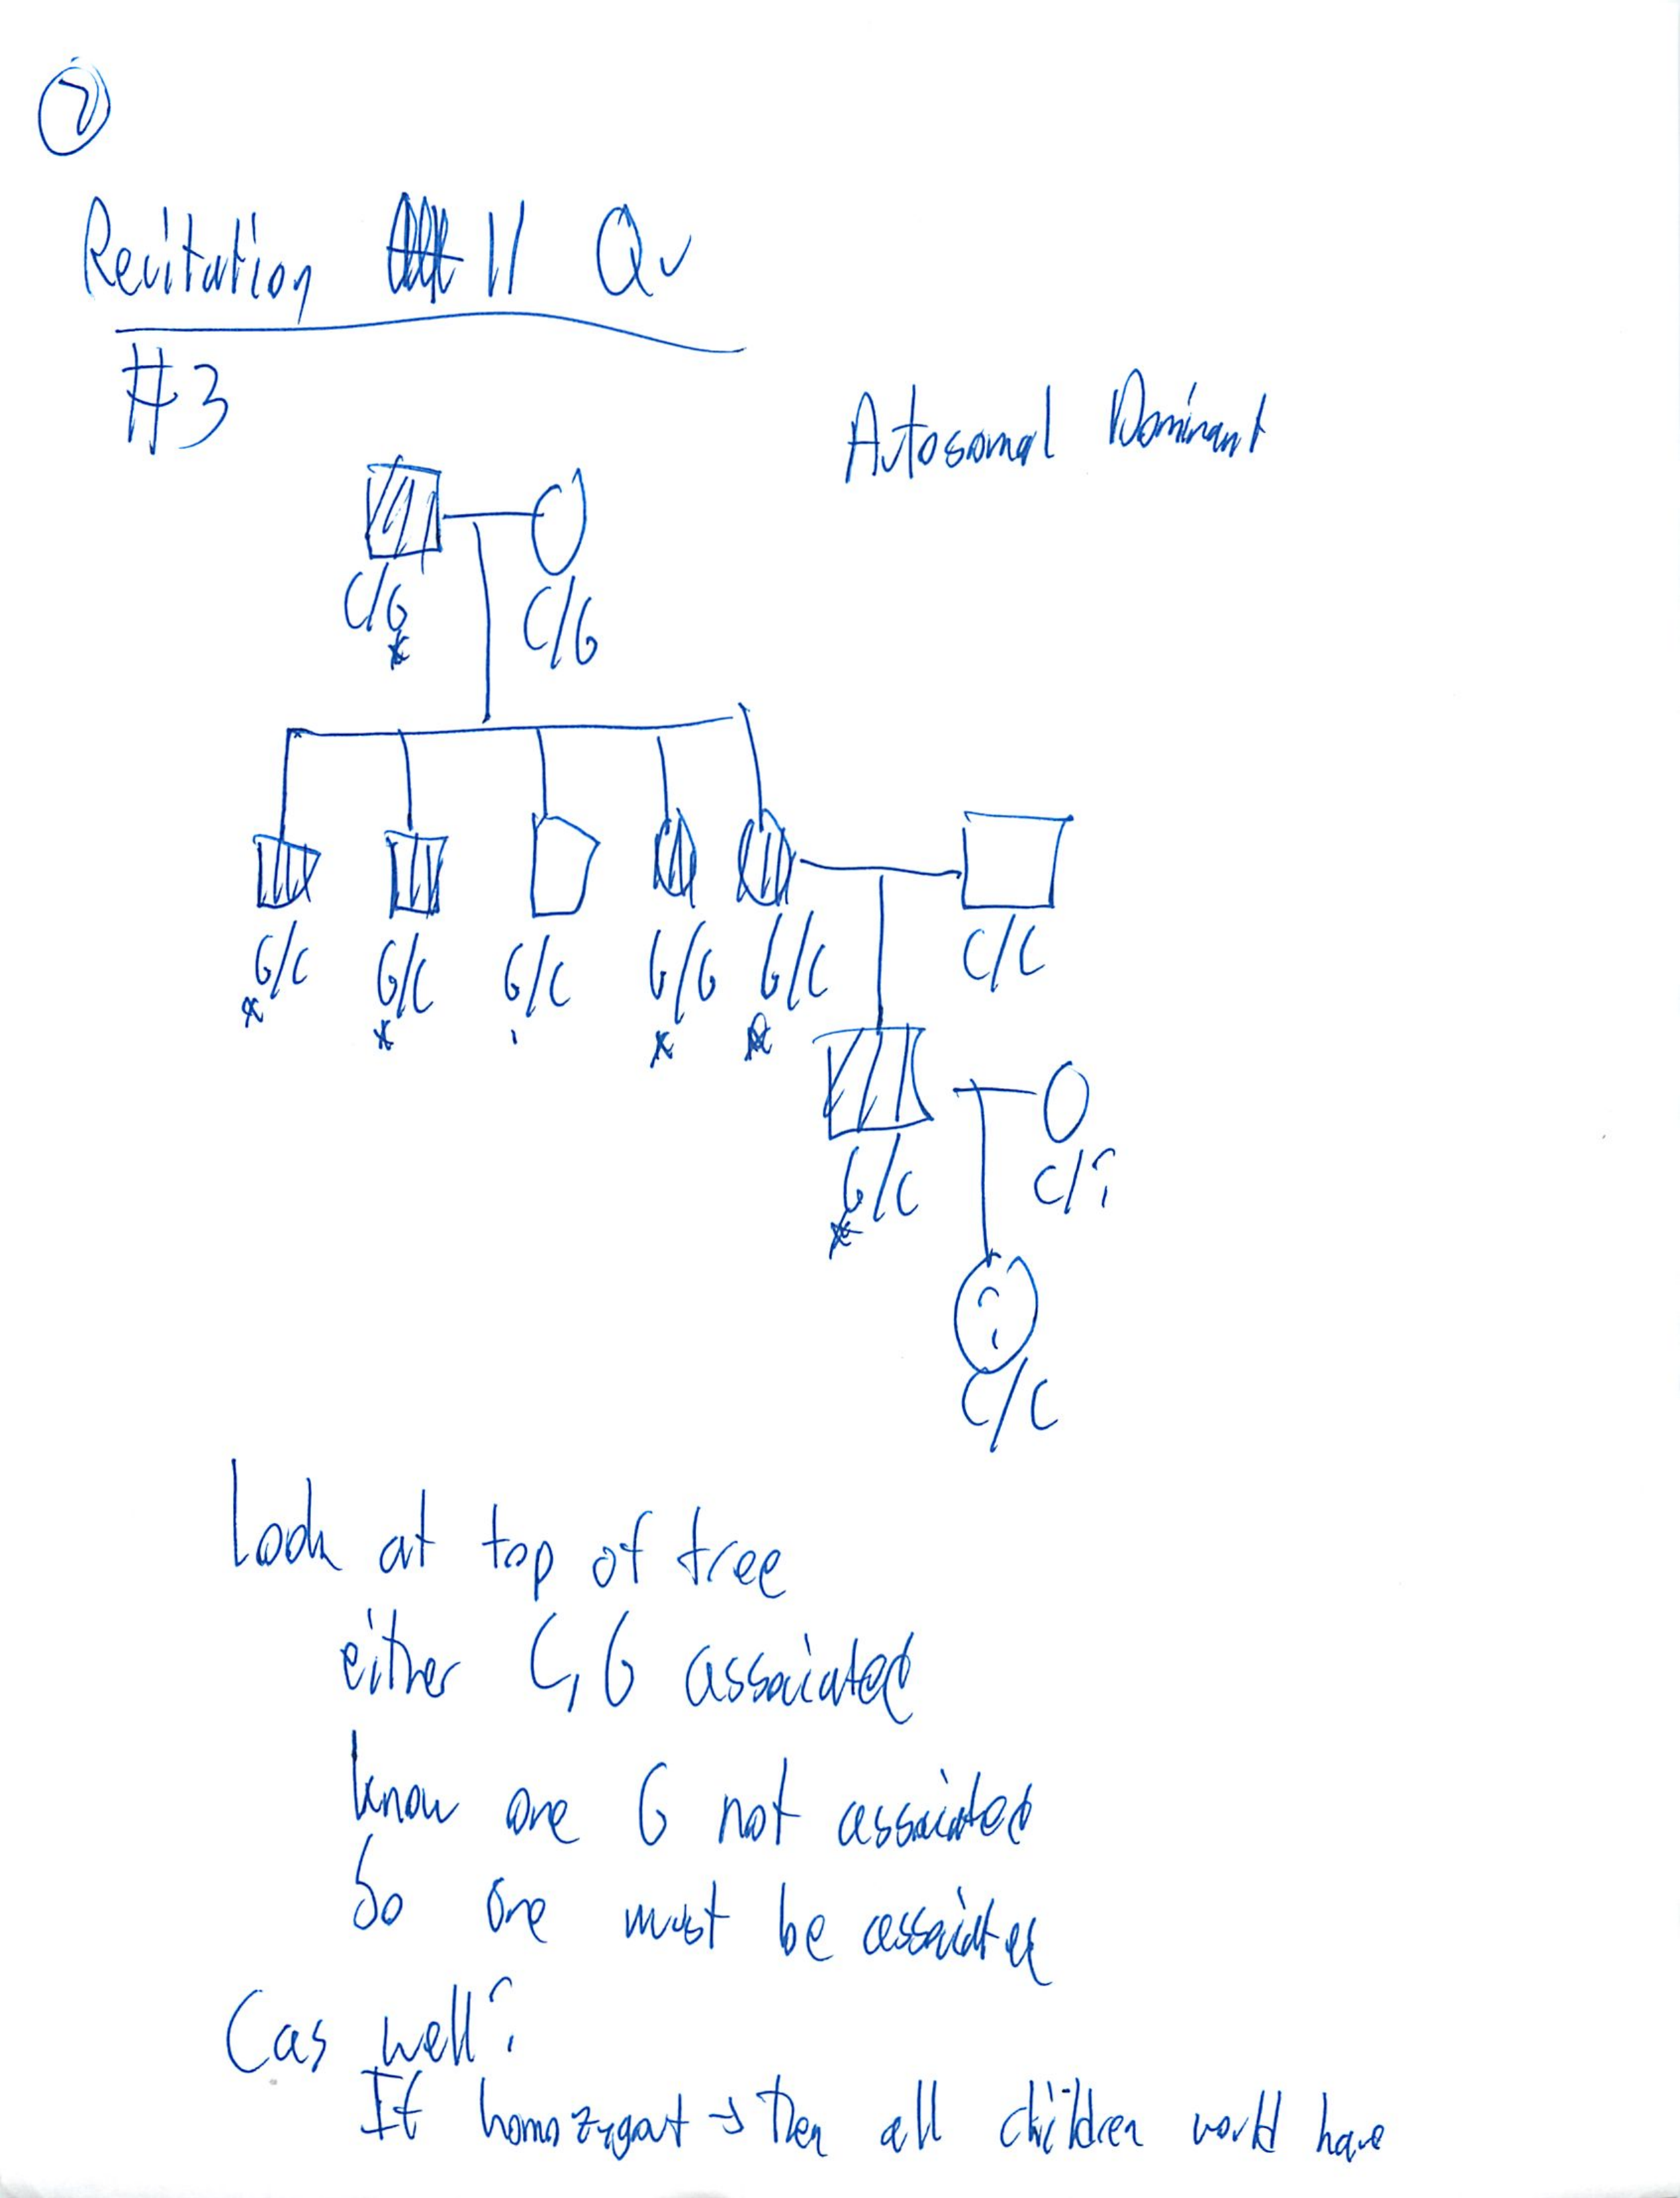 7
Recitation 11 Qu
#3
Autosomal Dominant
C/G C/G
*
G/C G/C G/C G/G G/C C/C
* * * *
G/C C/?
*
?
C/C
Look at top of tree
either C, G associated
know one G not associated
So one must be associated
C as well?
If homozygout → then all children would have